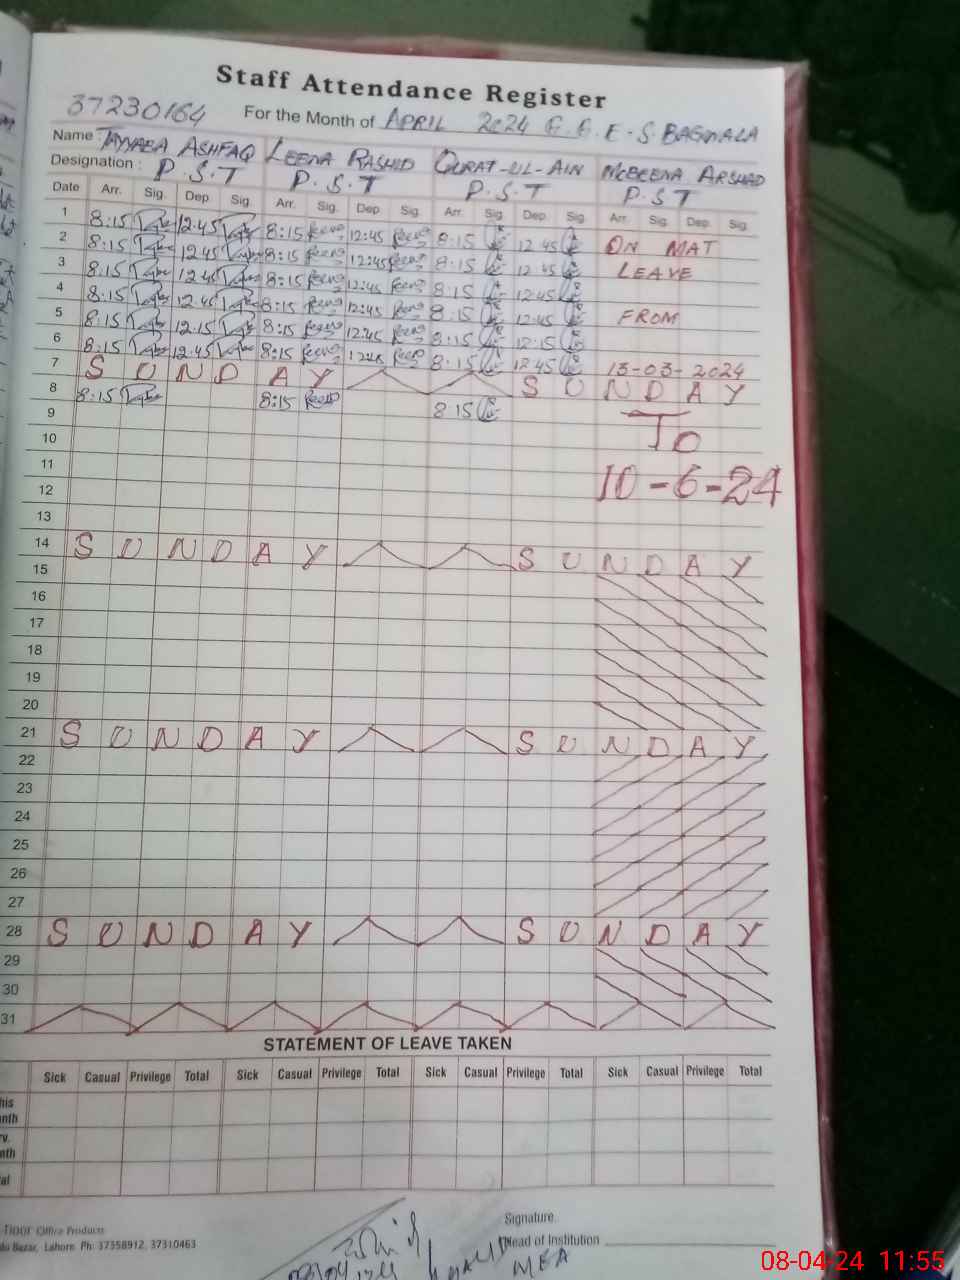 Staff Attendance Register
37230164 For the Month of APRIL 2024 G.G.E-S BAGWALA
Name : TAYYABA ASHFAQ LEENA RASHID QURAT-UL-AIN MOBEENA ARSHAD
Designation : P.S.T P.S.T P.S.T P.S.T
Date Arr. Sig. Dep. Sig. Arr. Sig. Dep. Sig. Arr. Sig. Dep. Sig. Arr. Sig. Dep. Sig.
1 8:15 12:45 8:15 12:45 8:15 12 45
2 8:15 12 45 8:15 12:45 8:15 12 45 ON MAT
3 8:15 12:45 8:15 12:45 8:15 12:45 LEAVE
4 8:15 12:45 8:15 12:45 8:15 12:45
5 8:15 12:15 8:15 12:45 8:15 12:15 FROM
6 8:15 12:45 8:15 12:45 8:15 12:45
7 SUNDAY SUNDAY 13-03-2024
8 8:15 8:15 8 15
9 To
10
11 10-6-24
12
13
14 SUNDAY SUNDAY
15
16
17
18
19
20
21 SUNDAY SUNDAY
22
23
24
25
26
27
28 SUNDAY SUNDAY
29
30
31
STATEMENT OF LEAVE TAKEN
Sick Casual Privilege Total Sick Casual Privilege Total Sick Casual Privilege Total Sick Casual Privilege Total
his
nth
rv.
nth
al
Office Products
Bazar, Lahore. Ph: 37358912, 37310463
Signature.
Head of Institution
MEA
08-04-24 11:55